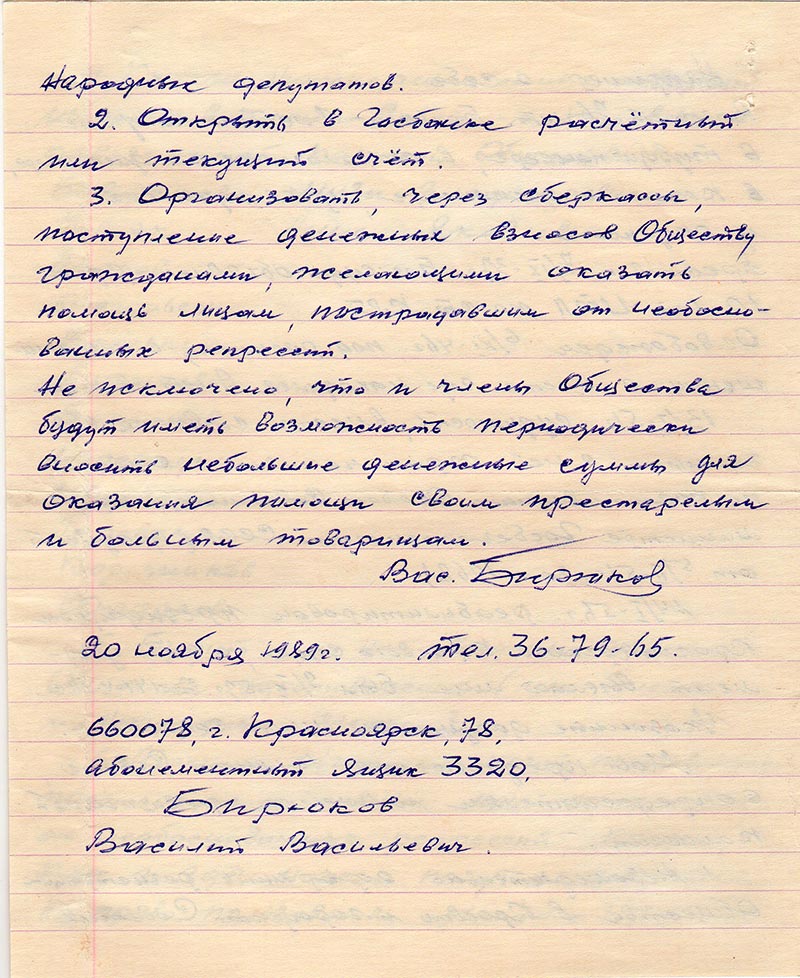 Народных депутатов.
2. Открыть в Госбанке расчётный
или текущий счёт.
3. Организовать, через сберкассы,
поступление денежных взносов Обществу
гражданами, желающими оказать
помощь лицам, пострадавшим от необосно-
ванных репрессий.
Не исключено, что и члены Общества
будут иметь возможность периодически
вносить небольшие денежные суммы для
оказания помощи своим престарелым
и больным товарищам.
Вас. Бирюков
20 ноября 1989г. Тел. 36-79-65.
660078, г. Красноярск, 78,
абонементный ящик 3320,
Бирюков
Василий Васильевич.